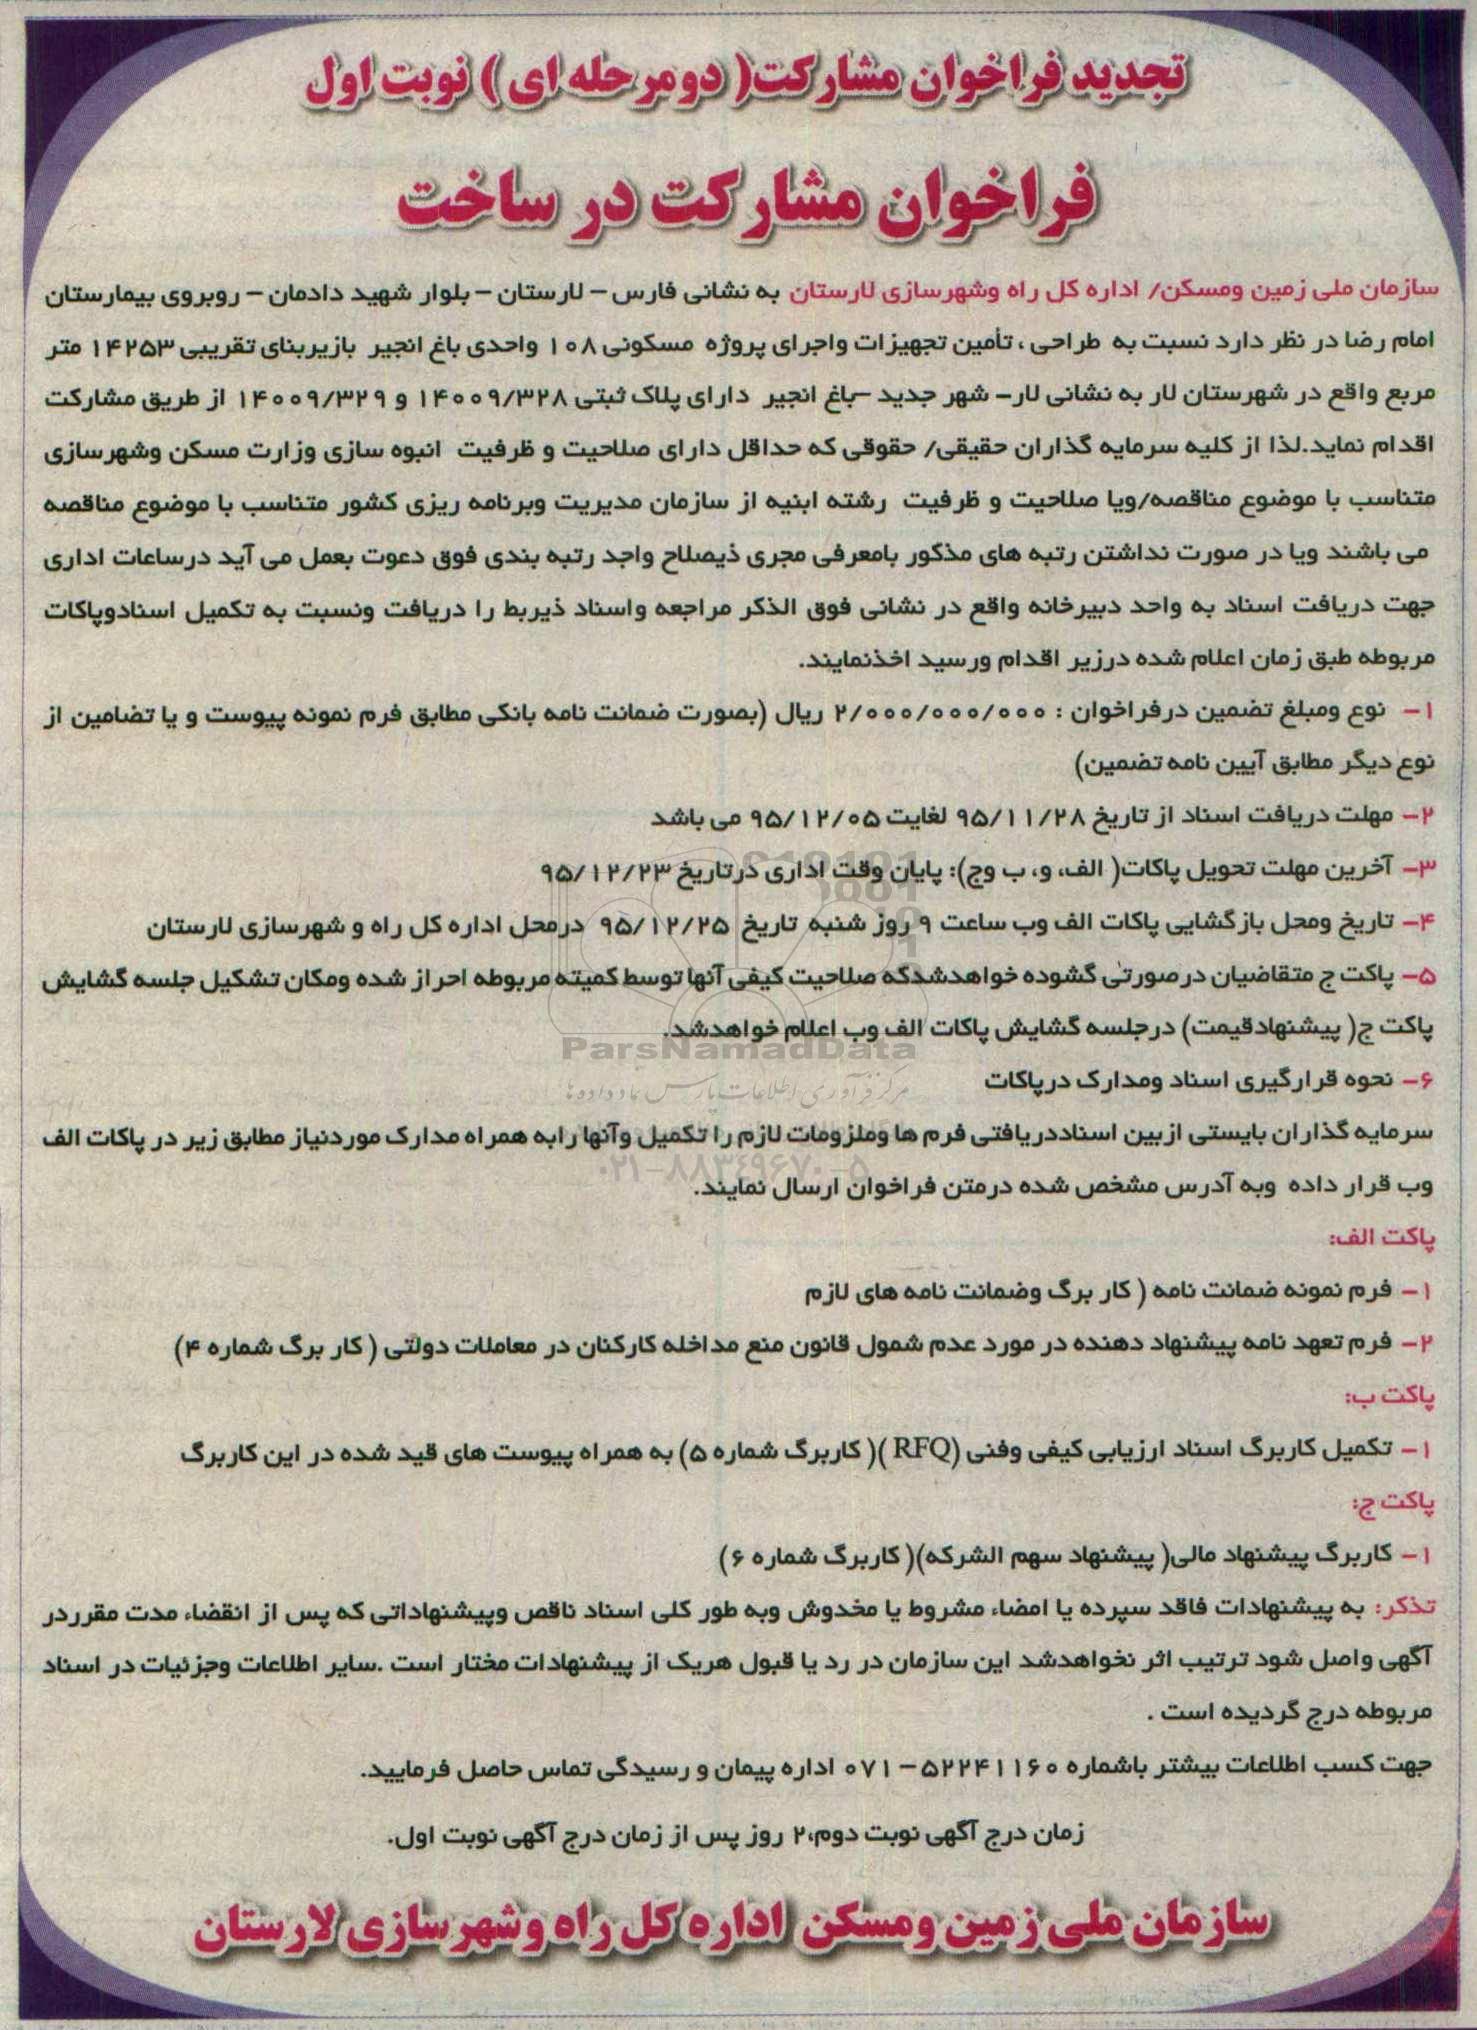 تجدید فراخوان مشارکت( دومرحله ای ) نوبت اول
فراخوان مشارکت در ساخت
سازمان ملی زمین ومسکن/ اداره کل راه وشهرسازی لارستان به نشانی فارس – لارستان – بلوار شهید دادمان – روبروی بیمارستان
امام رضا در نظر دارد نسبت به طراحی ، تأمین تجهیزات واجرای پروژه مسکونی ۱۰۸ واحدی باغ انجیر بازیربنای تقریبی ۱۴۲۵۳ متر
مربع واقع در شهرستان لار به نشانی لار– شهر جدید –باغ انجیر دارای پلاک ثبتی ۱۴۰۰۹/۳۲۸ و ۱۴۰۰۹/۳۲۹ از طریق مشارکت
اقدام نماید.لذا از کلیه سرمایه گذاران حقیقی/ حقوقی که حداقل دارای صلاحیت و ظرفیت انبوه سازی وزارت مسکن وشهرسازی
متناسب با موضوع مناقصه/ویا صلاحیت و ظرفیت رشته ابنیه از سازمان مدیریت وبرنامه ریزی کشور متناسب با موضوع مناقصه
می باشند ویا در صورت نداشتن رتبه های مذکور بامعرفی مجری ذیصلاح واجد رتبه بندی فوق دعوت بعمل می آید درساعات اداری
جهت دریافت اسناد به واحد دبیرخانه واقع در نشانی فوق الذکر مراجعه واسناد ذیربط را دریافت ونسبت به تکمیل اسنادوپاکات
مربوطه طبق زمان اعلام شده درزیر اقدام ورسید اخذنمایند.
۱– نوع ومبلغ تضمین درفراخوان : ۲/۰۰۰/۰۰۰/۰۰۰ ریال (بصورت ضمانت نامه بانکی مطابق فرم نمونه پیوست و یا تضامین از
نوع دیگر مطابق آیین نامه تضمین)
۲– مهلت دریافت اسناد از تاریخ ۹۵/۱۱/۲۸ لغایت ۹۵/۱۲/۰۵ می باشد
۳– آخرین مهلت تحویل پاکات( الف، و، ب وج): پایان وقت اداری درتاریخ ۹۵/۱۲/۲۳
۴– تاریخ ومحل بازگشایی پاکات الف وب ساعت ۹ روز شنبه تاریخ ۹۵/۱۲/۲۵ درمحل اداره کل راه و شهرسازی لارستان
۵– پاکت ج متقاضیان درصورتی گشوده خواهدشدکه صلاحیت کیفی آنها توسط کمیته مربوطه احراز شده ومکان تشکیل جلسه گشایش
پاکت ج( پیشنهادقیمت) درجلسه گشایش پاکات الف وب اعلام خواهدشد.
ParsNamadData
مرکز فرآوری اطلاعات پارس نماد داده ها
۶– نحوه قرارگیری اسناد ومدارک درپاکات
سرمایه گذاران بایستی ازبین اسناددریافتی فرم ها وملزومات لازم را تکمیل وآنها رابه همراه مدارک موردنیاز مطابق زیر در پاکات الف
۰۲۱-۸۸۳۴۹۶۷۰-۵
وب قرار داده وبه آدرس مشخص شده درمتن فراخوان ارسال نمایند.
پاکت الف:
۱– فرم نمونه ضمانت نامه ( کار برگ وضمانت نامه های لازم
۲– فرم تعهد نامه پیشنهاد دهنده در مورد عدم شمول قانون منع مداخله کارکنان در معاملات دولتی ( کار برگ شماره ۴)
پاکت ب:
۱– تکمیل کاربرگ اسناد ارزیابی کیفی وفنی (RFQ )( کاربرگ شماره ۵) به همراه پیوست های قید شده در این کاربرگ
پاکت ج:
۱– کاربرگ پیشنهاد مالی( پیشنهاد سهم الشرکه)( کاربرگ شماره ۶)
تذکر: به پیشنهادات فاقد سپرده یا امضاء مشروط یا مخدوش وبه طور کلی اسناد ناقص وپیشنهاداتی که پس از انقضاء مدت مقرردر
آگهی واصل شود ترتیب اثر نخواهدشد این سازمان در رد یا قبول هریک از پیشنهادات مختار است .سایر اطلاعات وجزئیات در اسناد
مربوطه درج گردیده است .
جهت کسب اطلاعات بیشتر باشماره ۵۲۲۴۱۱۶۰–۰۷۱ اداره پیمان و رسیدگی تماس حاصل فرمایید.
زمان درج آگهی نوبت دوم،۲ روز پس از زمان درج آگهی نوبت اول.
سازمان ملی زمین ومسکن اداره کل راه وشهرسازی لارستان